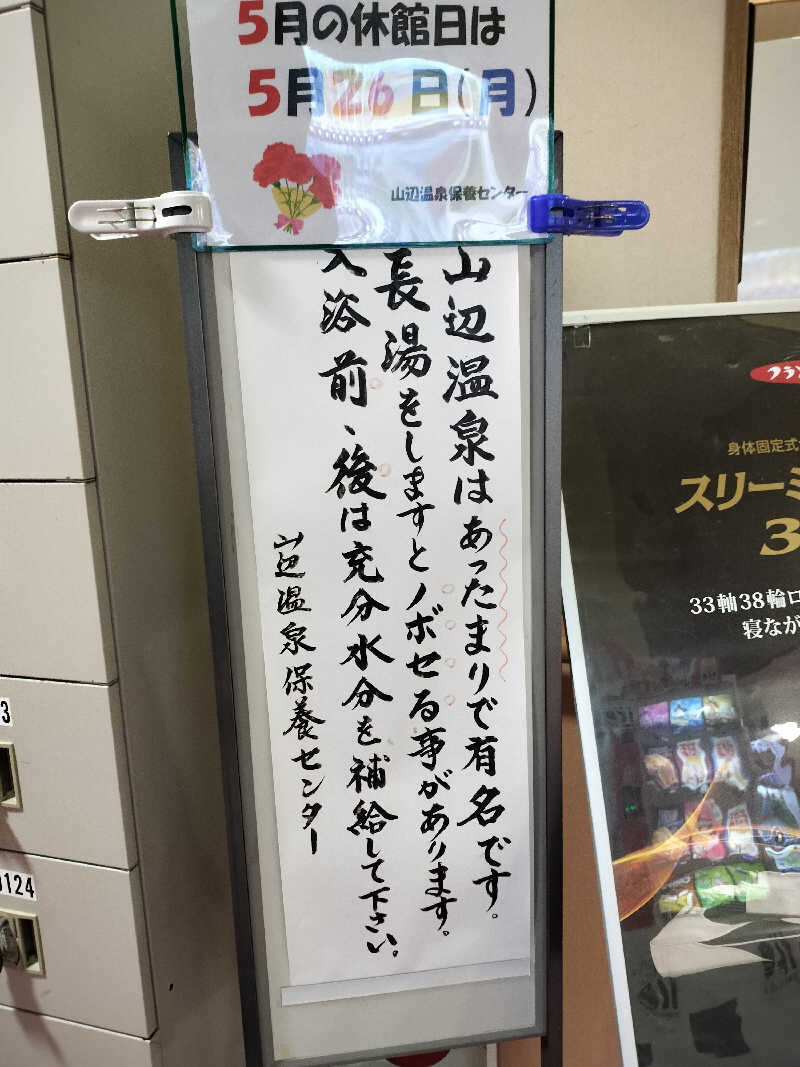 5月の休館日は
5月26日(月)
山辺温泉保養センター
山辺温泉はあったまりで有名です。
長湯をしますとノボセる事があります。
入浴前、後は充分水分を補給して下さい。
山辺温泉保養センター
フラン
身体固定式
スリーミ
3
33軸38輪ロ
寝なが
3
0124